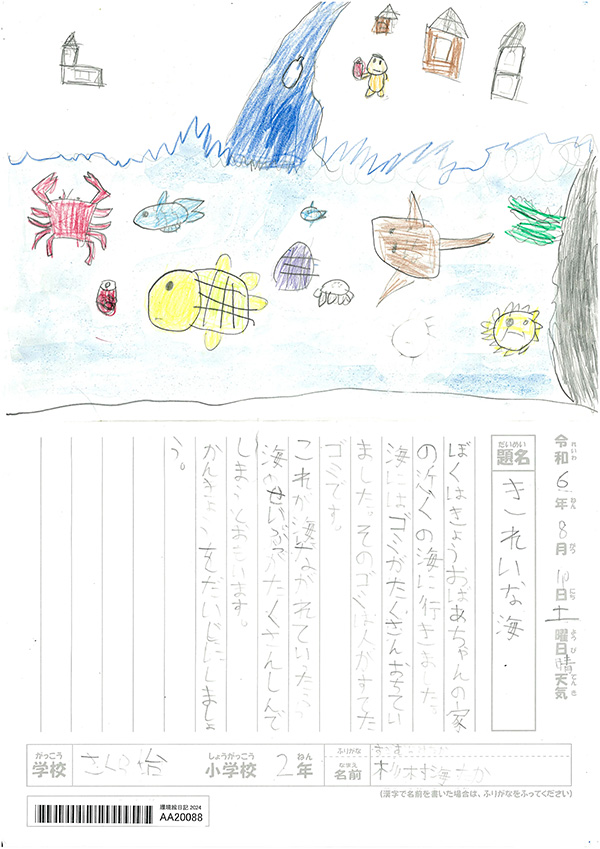 令和6年8月10日土曜日晴天気
れいわ ねん がつ にち ようび てんき
だいめい
題名 きれいな海
ぼくはきょうおばあちゃんの家
の近くの海に行きました。
海にはゴミがたくさんおちてい
ました。そのゴミは人がすてた
ゴミです。
これが海にながれていったら
海のせいぶつがたくさんしんで
しまうとおもいます。
かんきょうをだいじにしましょ
う。
がっこう しょうがっこう ねん ふりがな
学校 さくら 小学校 2年 なまえ 名前
(漢字で名前を書いた場合は、ふりがなをふってください)
環境絵日記 2024
AA20088